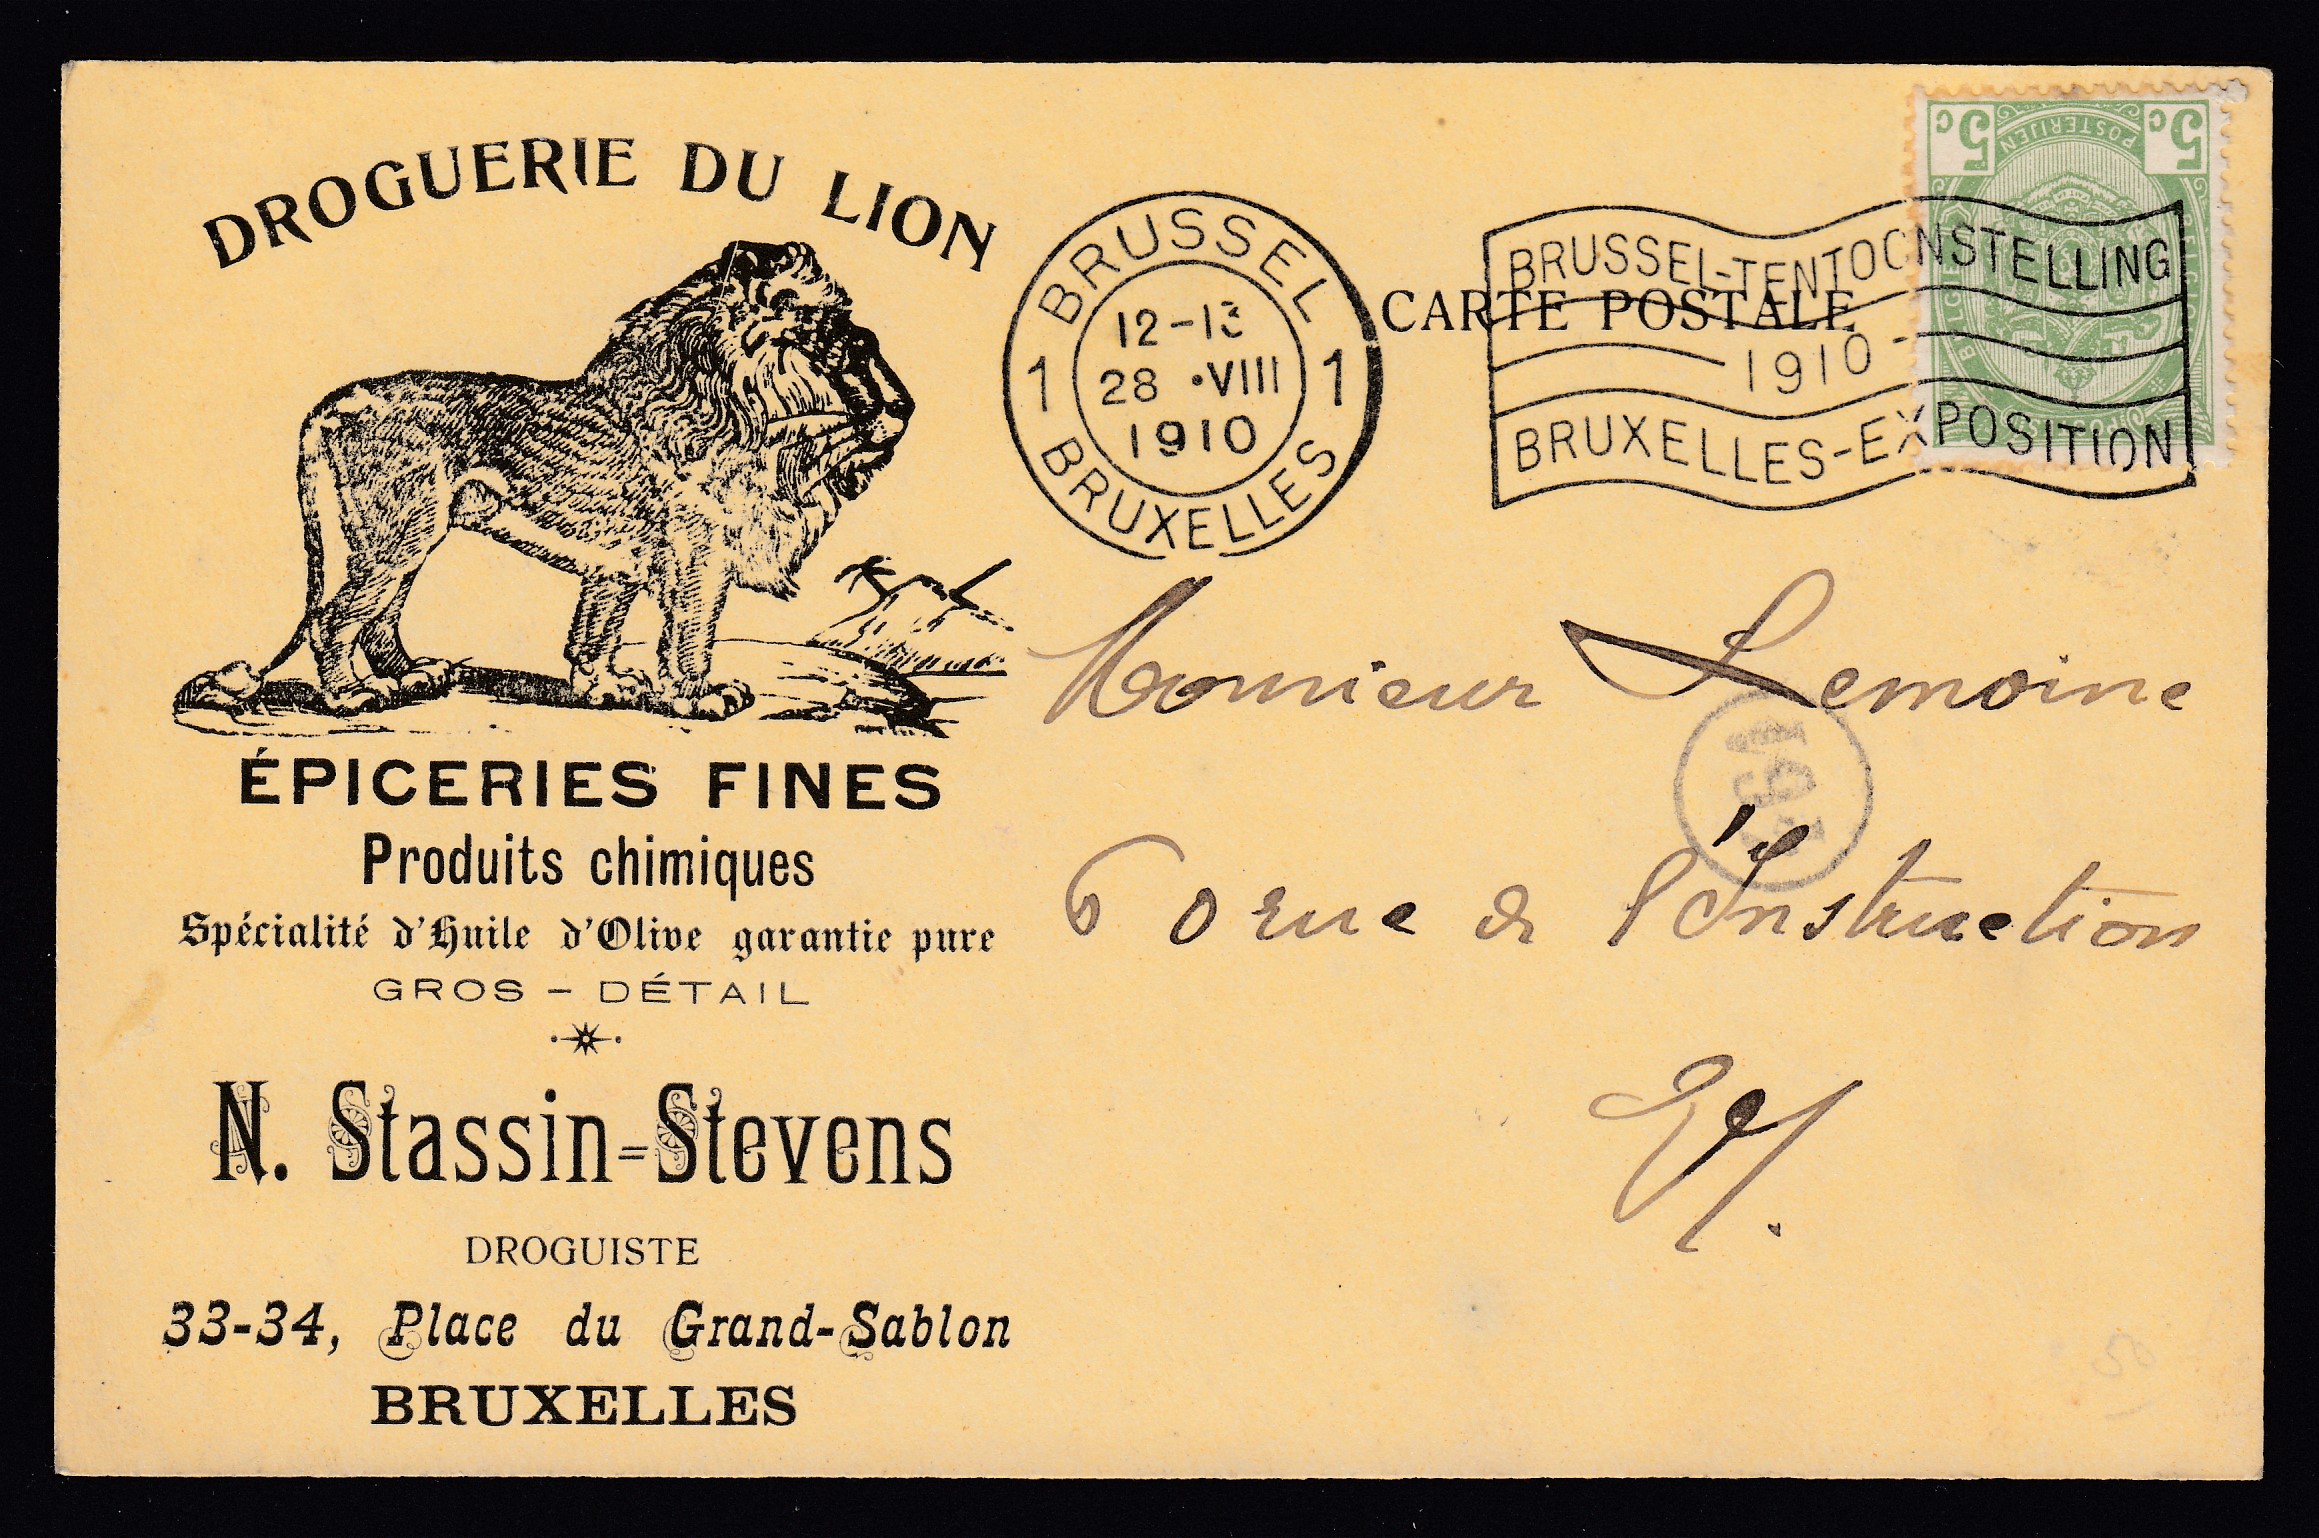 DROGUERIE DU LION
ÉPICERIES FINES
Produits chimiques
Spécialité d'Huile d'Olive garantie pure
GROS – DÉTAIL
N. Stassin=Stevens
DROGUISTE
33-34, Place du Grand-Sablon
BRUXELLES
BRUSSEL
12-13
1 28 ·VIII 1
1910
BRUXELLES
CARTE POSTALE
BRUSSEL-TENTOONSTELLING
1910
BRUXELLES-EXPOSITION
5c 5c
POSTERIJEN
Monsieur Lemoine
60 rue de l'Instruction